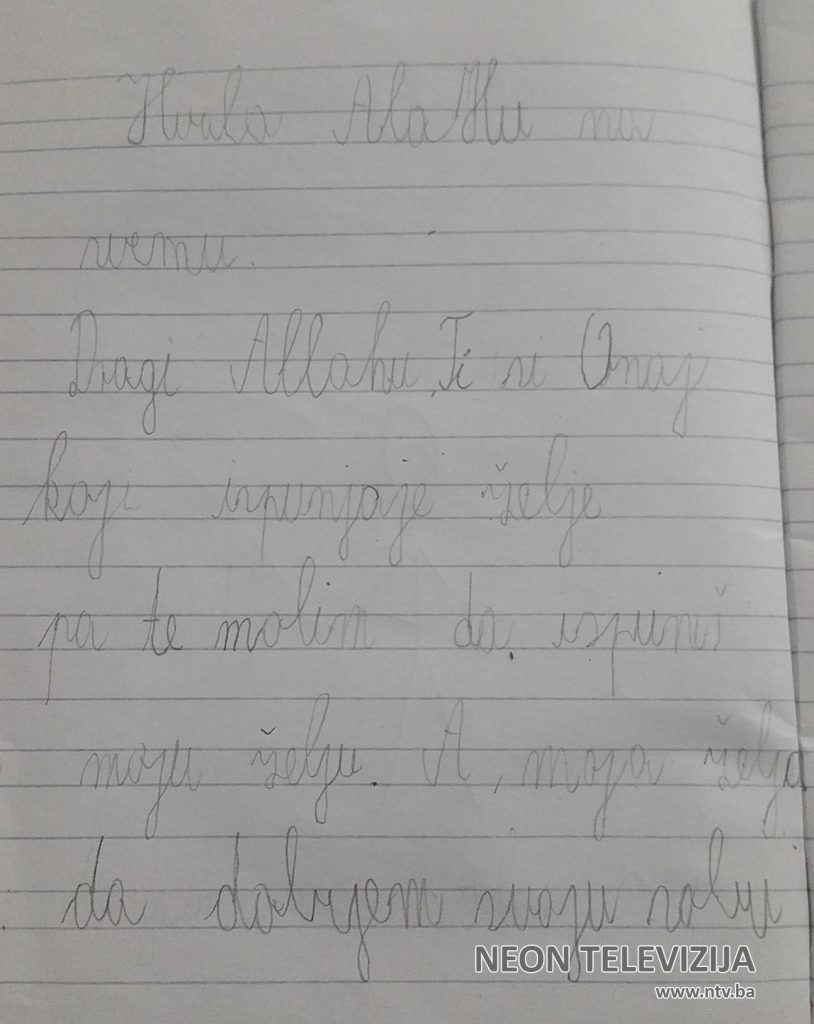 Hvala AlaHu na
svemu.
Dragi Allahu, Ti si Onaj
koji ispunjaje želje
pa te molim da ispuniš
moju želju. A, moja želja
da dobijem svoju sobu
NEON TELEVIZIJA
www.ntv.ba